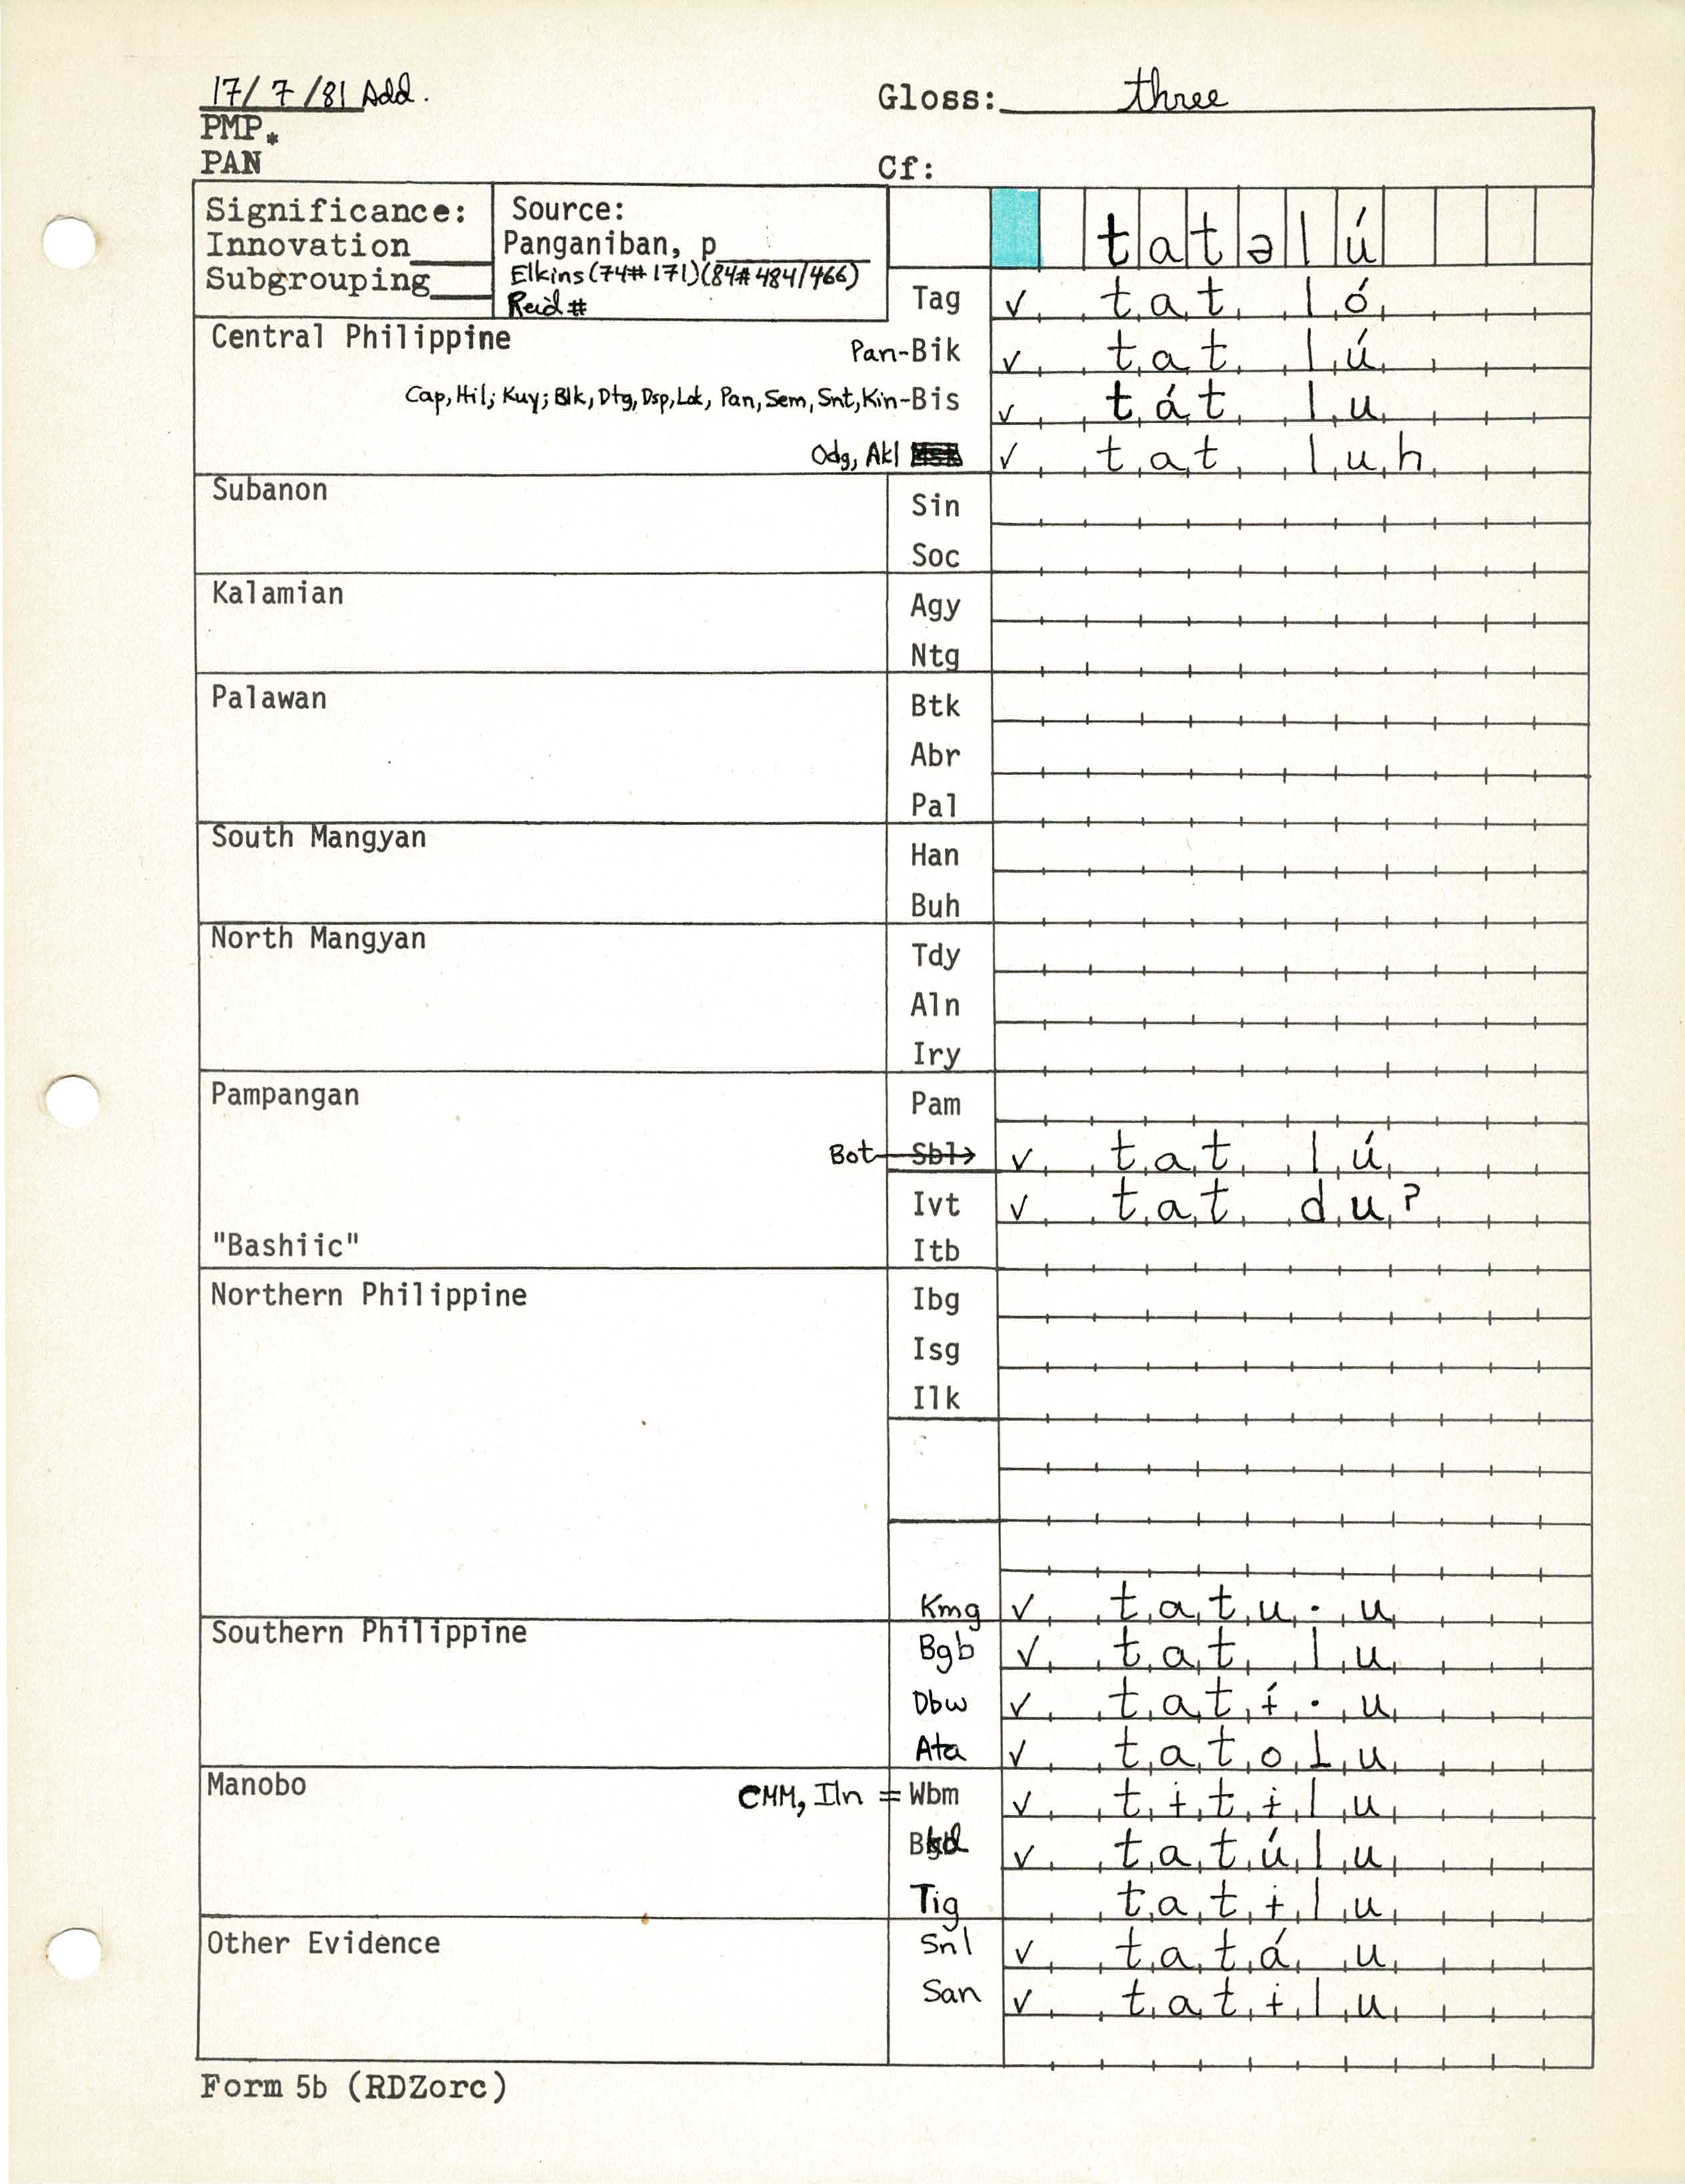 17/7/81 Add.
Gloss: three
PMP *
PAN
Cf:
Significance:
Innovation
Subgrouping
Source:
Panganiban, p
Elkins (74# 171)(84# 484/466)
Reid #
t a t ə l ú
Tag ✓ t a t l ó
Central Philippine
Pan-Bik ✓ t a t l ú
Cap, Hil; Kuy; Blk, Dtg, Dsp, Lok, Pan, Sem, Snt, Kin-Bis ✓ t á t l u
Odg, Akl ✓ t a t l u h
Subanon
Sin
Soc
Kalamian
Agy
Ntg
Palawan
Btk
Abr
Pal
South Mangyan
Han
Buh
North Mangyan
Tdy
Aln
Iry
Pampangan
Pam
Bot Sbl → ✓ t a t l ú
Ivt ✓ t a t d u ʔ
"Bashiic"
Itb
Northern Philippine
Ibg
Isg
Ilk
Kmg ✓ t a t u · u
Southern Philippine
Bgb ✓ t a t l u
Dbw ✓ t a t ɨ́ · u
Ata ✓ t a t o l u
Manobo
CMM, Iln = Wbm ✓ t ɨ t ɨ l u
Bkd ✓ t a t ú l u
Tig t a t ɨ l u
Other Evidence
Snl ✓ t a t á u
San ✓ t a t ɨ l u
Form 5b (RDZorc)